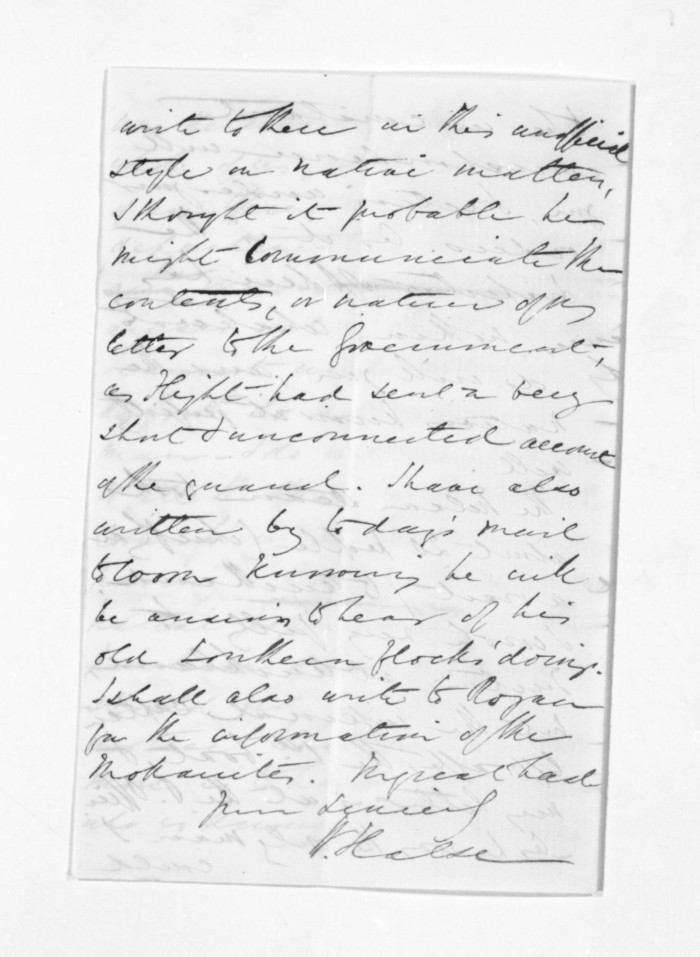 write to thee in this unofficial
style on native matters,
I thought it probable he
might communicate the
contents, or nature of my
letter to the Government,
as Flight had sent a very
short & unconnected account
of the quarrel. I have also
written by to day's mail
to knowing he will
be anxious to hear of his
old Southern flocks' doings.
I shall also write to Rogan
for the information of the
Mokauites. In great haste
Yours sincerely
H. Halse